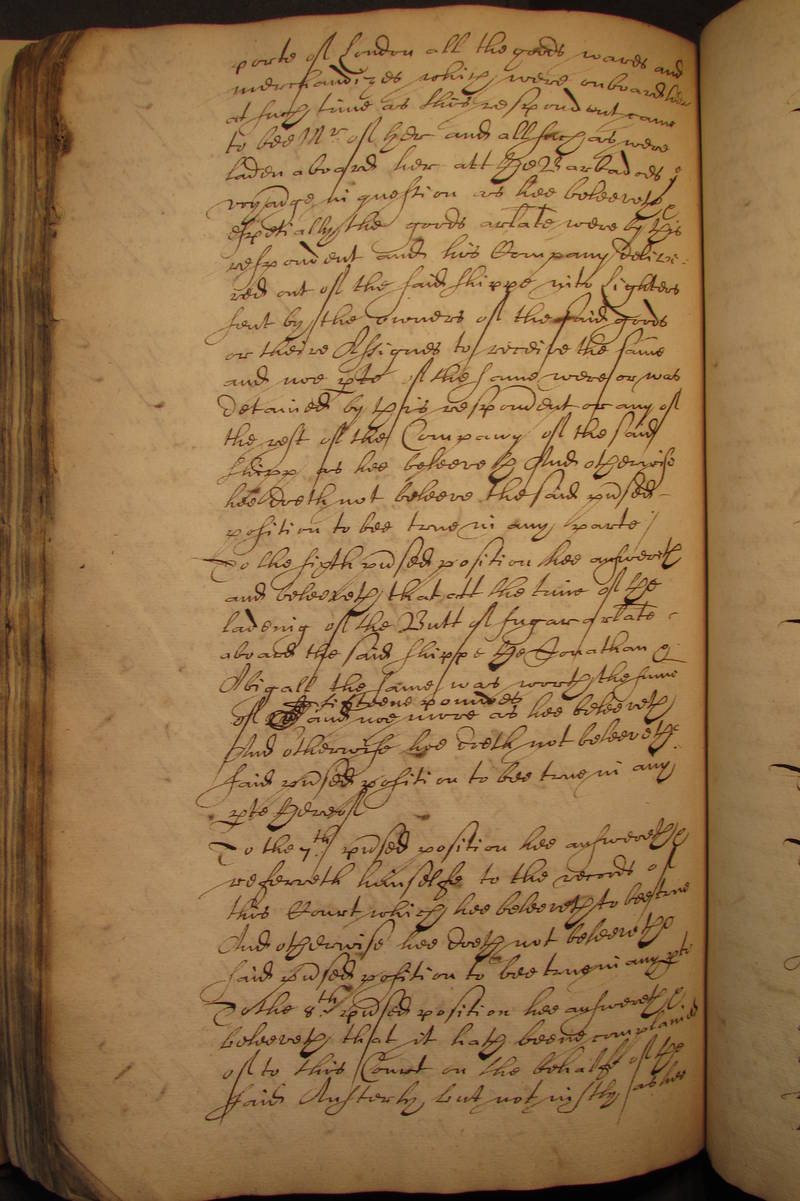 porte of London all the goods wares and
merchandizes which were onboard her
at such time as this respondent came
to bee Mr of her and all such as were
laden aboard her att the Barbadoes ye
voyadge in question as hee beleeveth &
espetially the goods arlate were by this
respondent and his Company delive:
red out of the said shippe into lighters
sent by the owners of the said goods
or theire Assignes to receive the same
and noe pte of the same were or was
detained by this respondent or any of
the rest of the Company of the said
shipp as hee beleeveth And otherwise
hee doeth not beleeve the said pnsed
position to bee true in any parte /
To the sixth pnsed position hee answereth
and beleeveth that att the time of the
ladeing of the Butt of sugar arlate
aboard the said shippe the Jonathan &
Abigall the same was worth the summe
fifteene poundes
of and noe more as hee beleeveth
And otherwise hee doeth not beleeve the
said pnsed position to bee true in any
pte thereof
To the 7th pnsed position hee answereth &
referreth himselfe to the records of
this Court which hee beleeveth to bee true
And otherwise hee doeth not beleeve the
said pnsed position to bee true in any pte
To the 8th pnsed position hee answereth &
beleeveth that it hath beene complained
of to this Court on the behalfe of the
said Austerby but not justly as hee